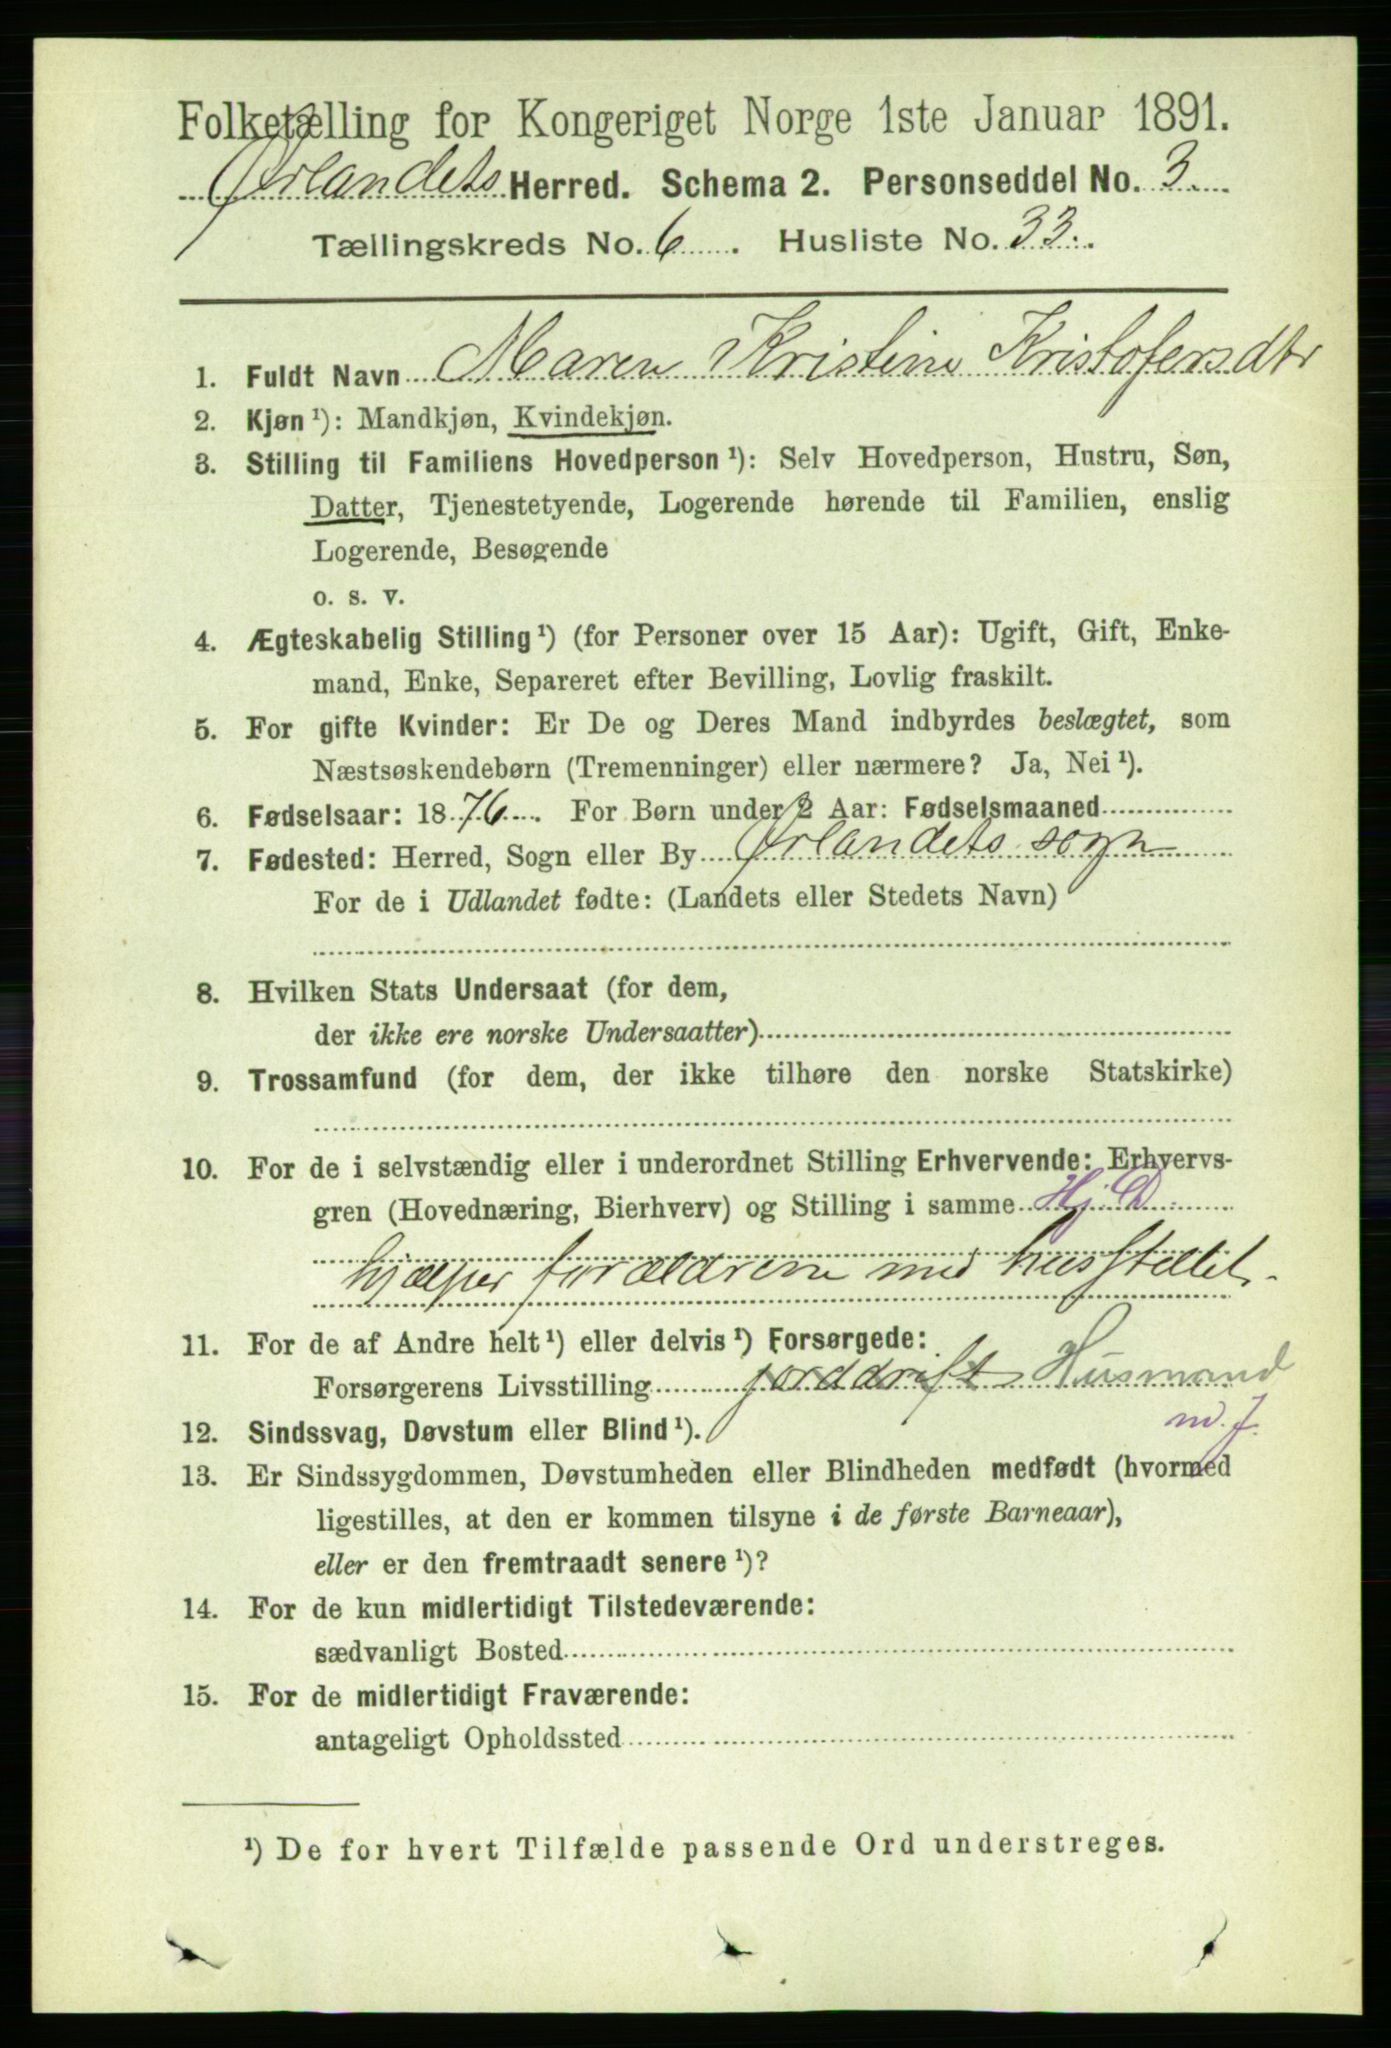 Folketælling for Kongeriget Norge 1ste Januar 1891.
Ørlandets Herred. Schema 2. Personseddel No. 3
Tællingskreds No. 6. Husliste No. 33.
1. Fuldt Navn Maren Kristine Kristofersdtr
2. Kjøn ¹): Mandkjøn, Kvindekjøn.
3. Stilling til Familiens Hovedperson ¹): Selv Hovedperson, Hustru, Søn,
Datter, Tjenestetyende, Logerende hørende til Familien, enslig
Logerende, Besøgende
o. s. v.
4. Ægteskabelig Stilling ¹) (for Personer over 15 Aar): Ugift, Gift, Enke-
mand, Enke, Separeret efter Bevilling, Lovlig fraskilt.
5. For gifte Kvinder: Er De og Deres Mand indbyrdes beslægtet, som
Næstsøskendebørn (Tremenninger) eller nærmere? Ja, Nei ¹).
6. Fødselsaar: 1876. For Børn under 2 Aar: Fødselsmaaned
7. Fødested: Herred, Sogn eller By Ørlandets sogn
For de i Udlandet fødte: (Landets eller Stedets Navn)
8. Hvilken Stats Undersaat (for dem,
der ikke ere norske Undersaatter)
9. Trossamfund (for dem, der ikke tilhøre den norske Statskirke)
10. For de i selvstændig eller i underordnet Stilling Erhvervende: Erhvervs-
gren (Hovednæring, Bierhverv) og Stilling i samme Hj. D.
hjælper forældrene med husstellet.
11. For de af Andre helt ¹) eller delvis ¹) Forsørgede:
Forsørgerens Livsstilling jorddrift Husmand
m. J.
12. Sindssvag, Døvstum eller Blind ¹).
13. Er Sindssygdommen, Døvstumheden eller Blindheden medfødt (hvormed
ligestilles, at den er kommen tilsyne i de første Barneaar),
eller er den fremtraadt senere ¹)?
14. For de kun midlertidigt Tilstedeværende:
sædvanligt Bosted
15. For de midlertidigt Fraværende:
antageligt Opholdssted
¹) De for hvert Tilfælde passende Ord understreges.